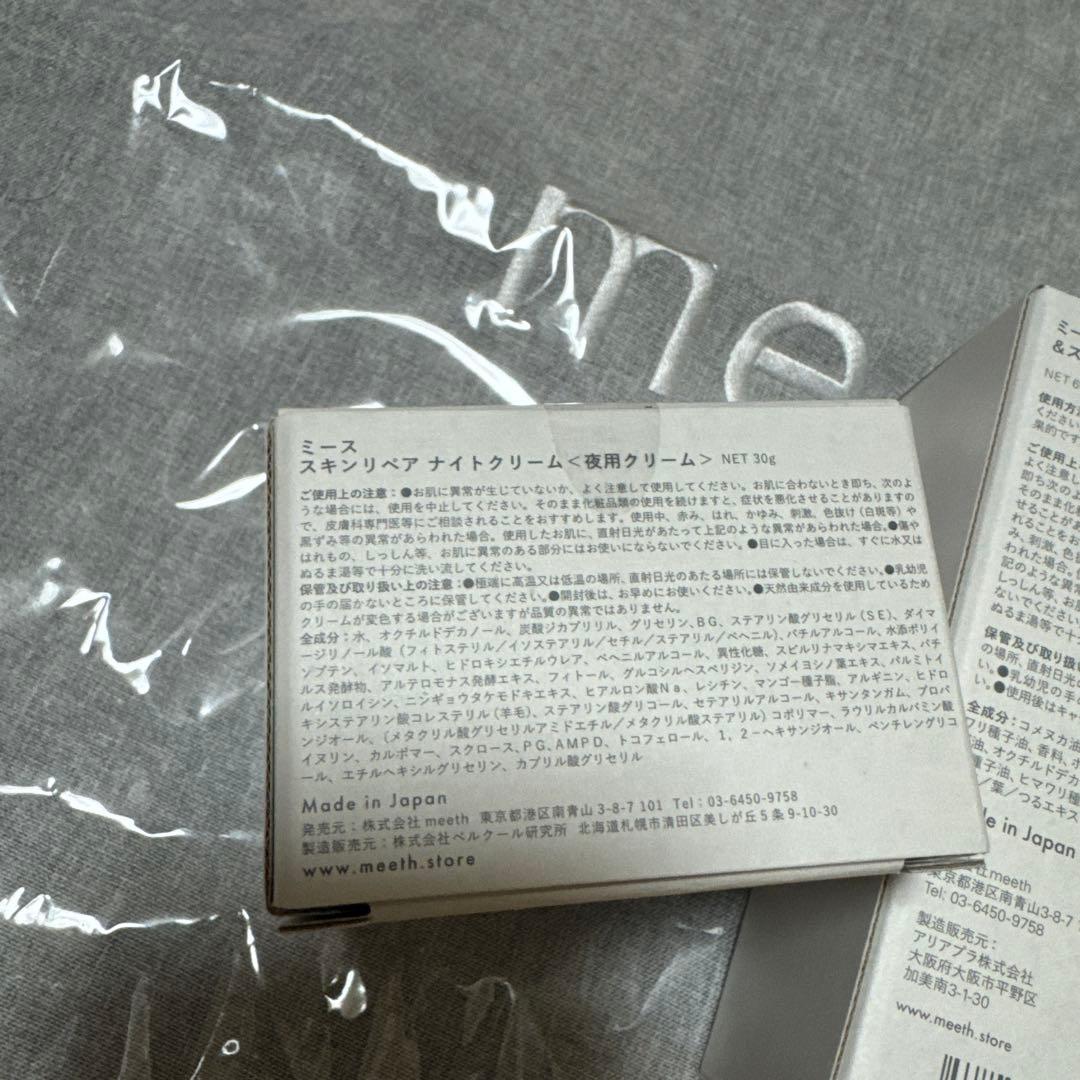 me
ミース
スキンリペア ナイトクリーム<夜用クリーム> NET 30g
ご使用上の注意:●お肌に異常が生じていないか、よく注意して使用してください。お肌に合わないとき即ち、次のよ
うな場合には、使用を中止してください。そのまま化粧品類の使用を続けますと、症状を悪化させることがありますの
で、皮膚科専門医等にご相談されることをおすすめします。使用中、赤み、はれ、かゆみ、刺激、色抜け(白斑等)や
黒ずみ等の異常があらわれた場合。使用したお肌に、直射日光があたって上記のような異常があらわれた場合。●傷や
はれもの、しっしん等、お肌に異常のある部分にはお使いにならないでください。●目に入った場合は、すぐに水又は
ぬるま湯等で十分に洗い流してください。
保管及び取り扱い上の注意:●極端に高温又は低温の場所、直射日光のあたる場所には保管しないでください。●乳幼児
の手の届かないところに保管してください。●開封後は、お早めにお使いください。●天然由来成分を使用しているため
クリームが変色する場合がございますが品質の異常ではありません。
全成分:水、オクチルドデカノール、炭酸ジカプリリル、グリセリン、BG、ステアリン酸グリセリル(SE)、ダイマ
ージリノール酸(フィトステリル/イソステアリル/セチル/ステアリル/ベヘニル)、バチルアルコール、水添ポリイ
ソブテン、イソマルト、ヒドロキシエチルウレア、ベヘニルアルコール、異性化糖、スピルリナマキシマエキス、バチ
ルス発酵物、アルテロモナス発酵エキス、フィトール、グルコシルヘスペリジン、ソメイヨシノ葉エキス、パルミトイ
ルイソロイシン、ニンギョウタケモドキエキス、ヒアルロン酸Na、レシチン、マンゴー種子脂、アルギニン、ヒドロ
キシステアリン酸コレステリル(羊毛)、ステアリン酸グリコール、セテアリルアルコール、キサンタンガム、プロパ
ンジオール、(メタクリル酸グリセリルアミドエチル/メタクリル酸ステアリル)コポリマー、ラウリルカルバミン酸
イヌリン、カルボマー、スクロース、PG、AMPD、トコフェロール、1,2-ヘキサンジオール、ペンチレングリコ
ール、エチルヘキシルグリセリン、カプリル酸グリセリル
Made in Japan
発売元:株式会社meeth 東京都港区南青山3-8-7 101 Tel:03-6450-9758
製造販売元:株式会社ベルクール研究所 北海道札幌市清田区美しが丘5条9-10-30
www.meeth.store
ミー
&ス
NET 6
使用方
ください
果的です
ご使用上
よく注意し
即ち次のよ
そのまま化
せることがあ
れることをお
み、刺激、色
われた場合。使
記のような異常
しっしん等、お
ないでください
ぬるま湯等で十
保管及び取り扱
の場所、直射日光
い。●乳幼児の手
い。●使用後はキャ
全成分:コメヌカ油
ワリ種子油、香料、ホ
油、オクチルドデカ
種子油、ヒマワリ種
/葉/つるエキス
e in Japan
社meeth
東京都港区南青山3-8-7
Tel: 03-6450-9758
製造販売元:
アリアプラ株式会社
大阪府大阪市平野区
加美南3-1-30
www.meeth.store